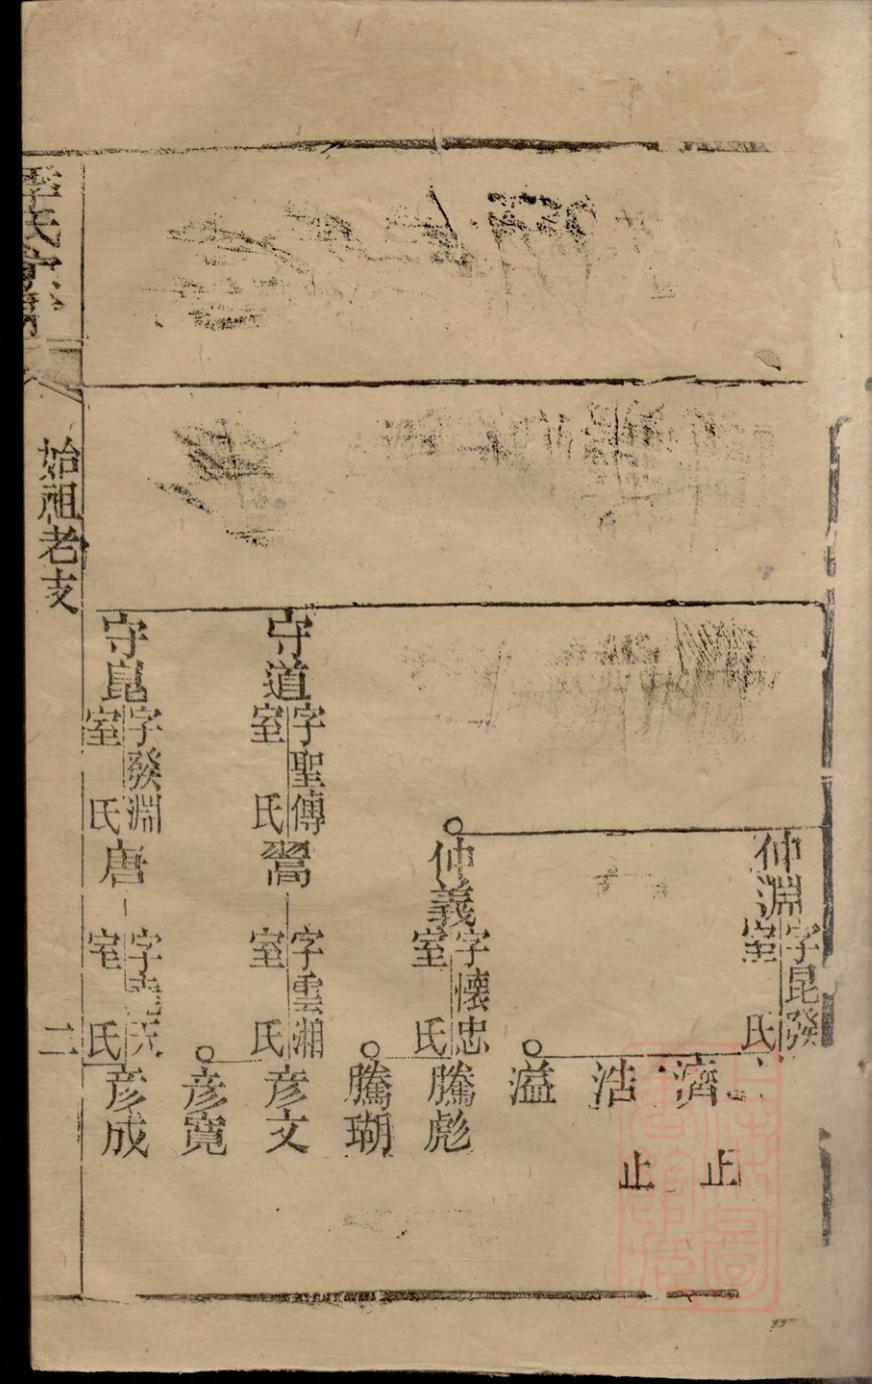 仲淵 字昆發 室 氏
濟 止
浩 止
溢
仲義 字懷忠 室 氏
騰彪
騰瑚
守道 字聖傳 室 氏
字雲湘 室 氏
彦文
彦寬
守崑 字發淵 室 氏
唐 字 室 氏
彦成
氏宗
始祖老支
二